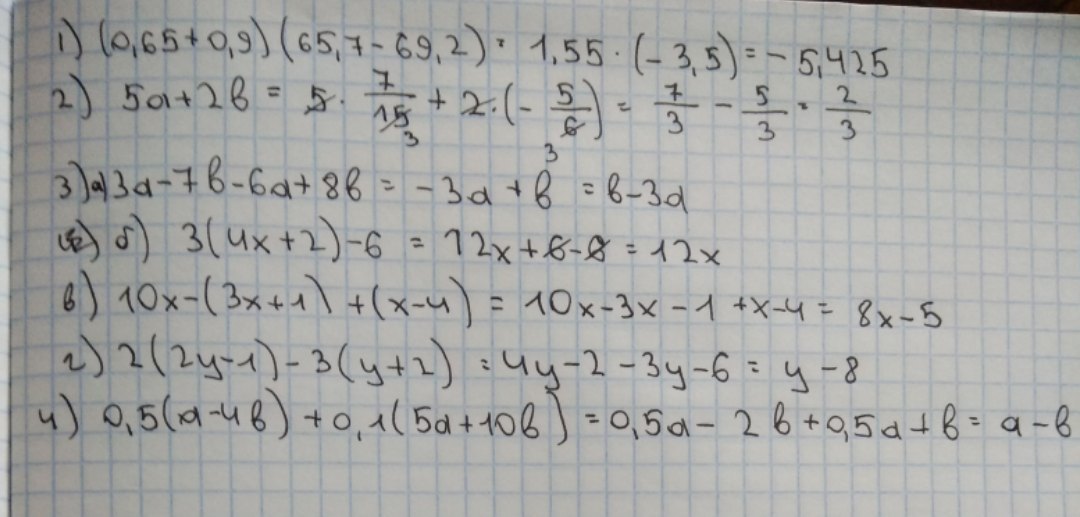 1) (0,65+0,9)(65,7-69,2) = 1,55 · (-3,5) = -5,425
2) 5a+2в = 5 · 7/15 + 2 · (- 5/6) = 7/3 - 5/3 = 2/3
3) а) 3a-7в-6a+8в = -3a+в = в-3a
б) 3(4x+2)-6 = 12x+6-6 = 12x
в) 10x-(3x+1)+(x-4) = 10x-3x-1+x-4 = 8x-5
г) 2(2y-1)-3(y+2) = 4y-2-3y-6 = y-8
4) 0,5(a-4в)+0,1(5a+10в) = 0,5a-2в+0,5a+в = a-в